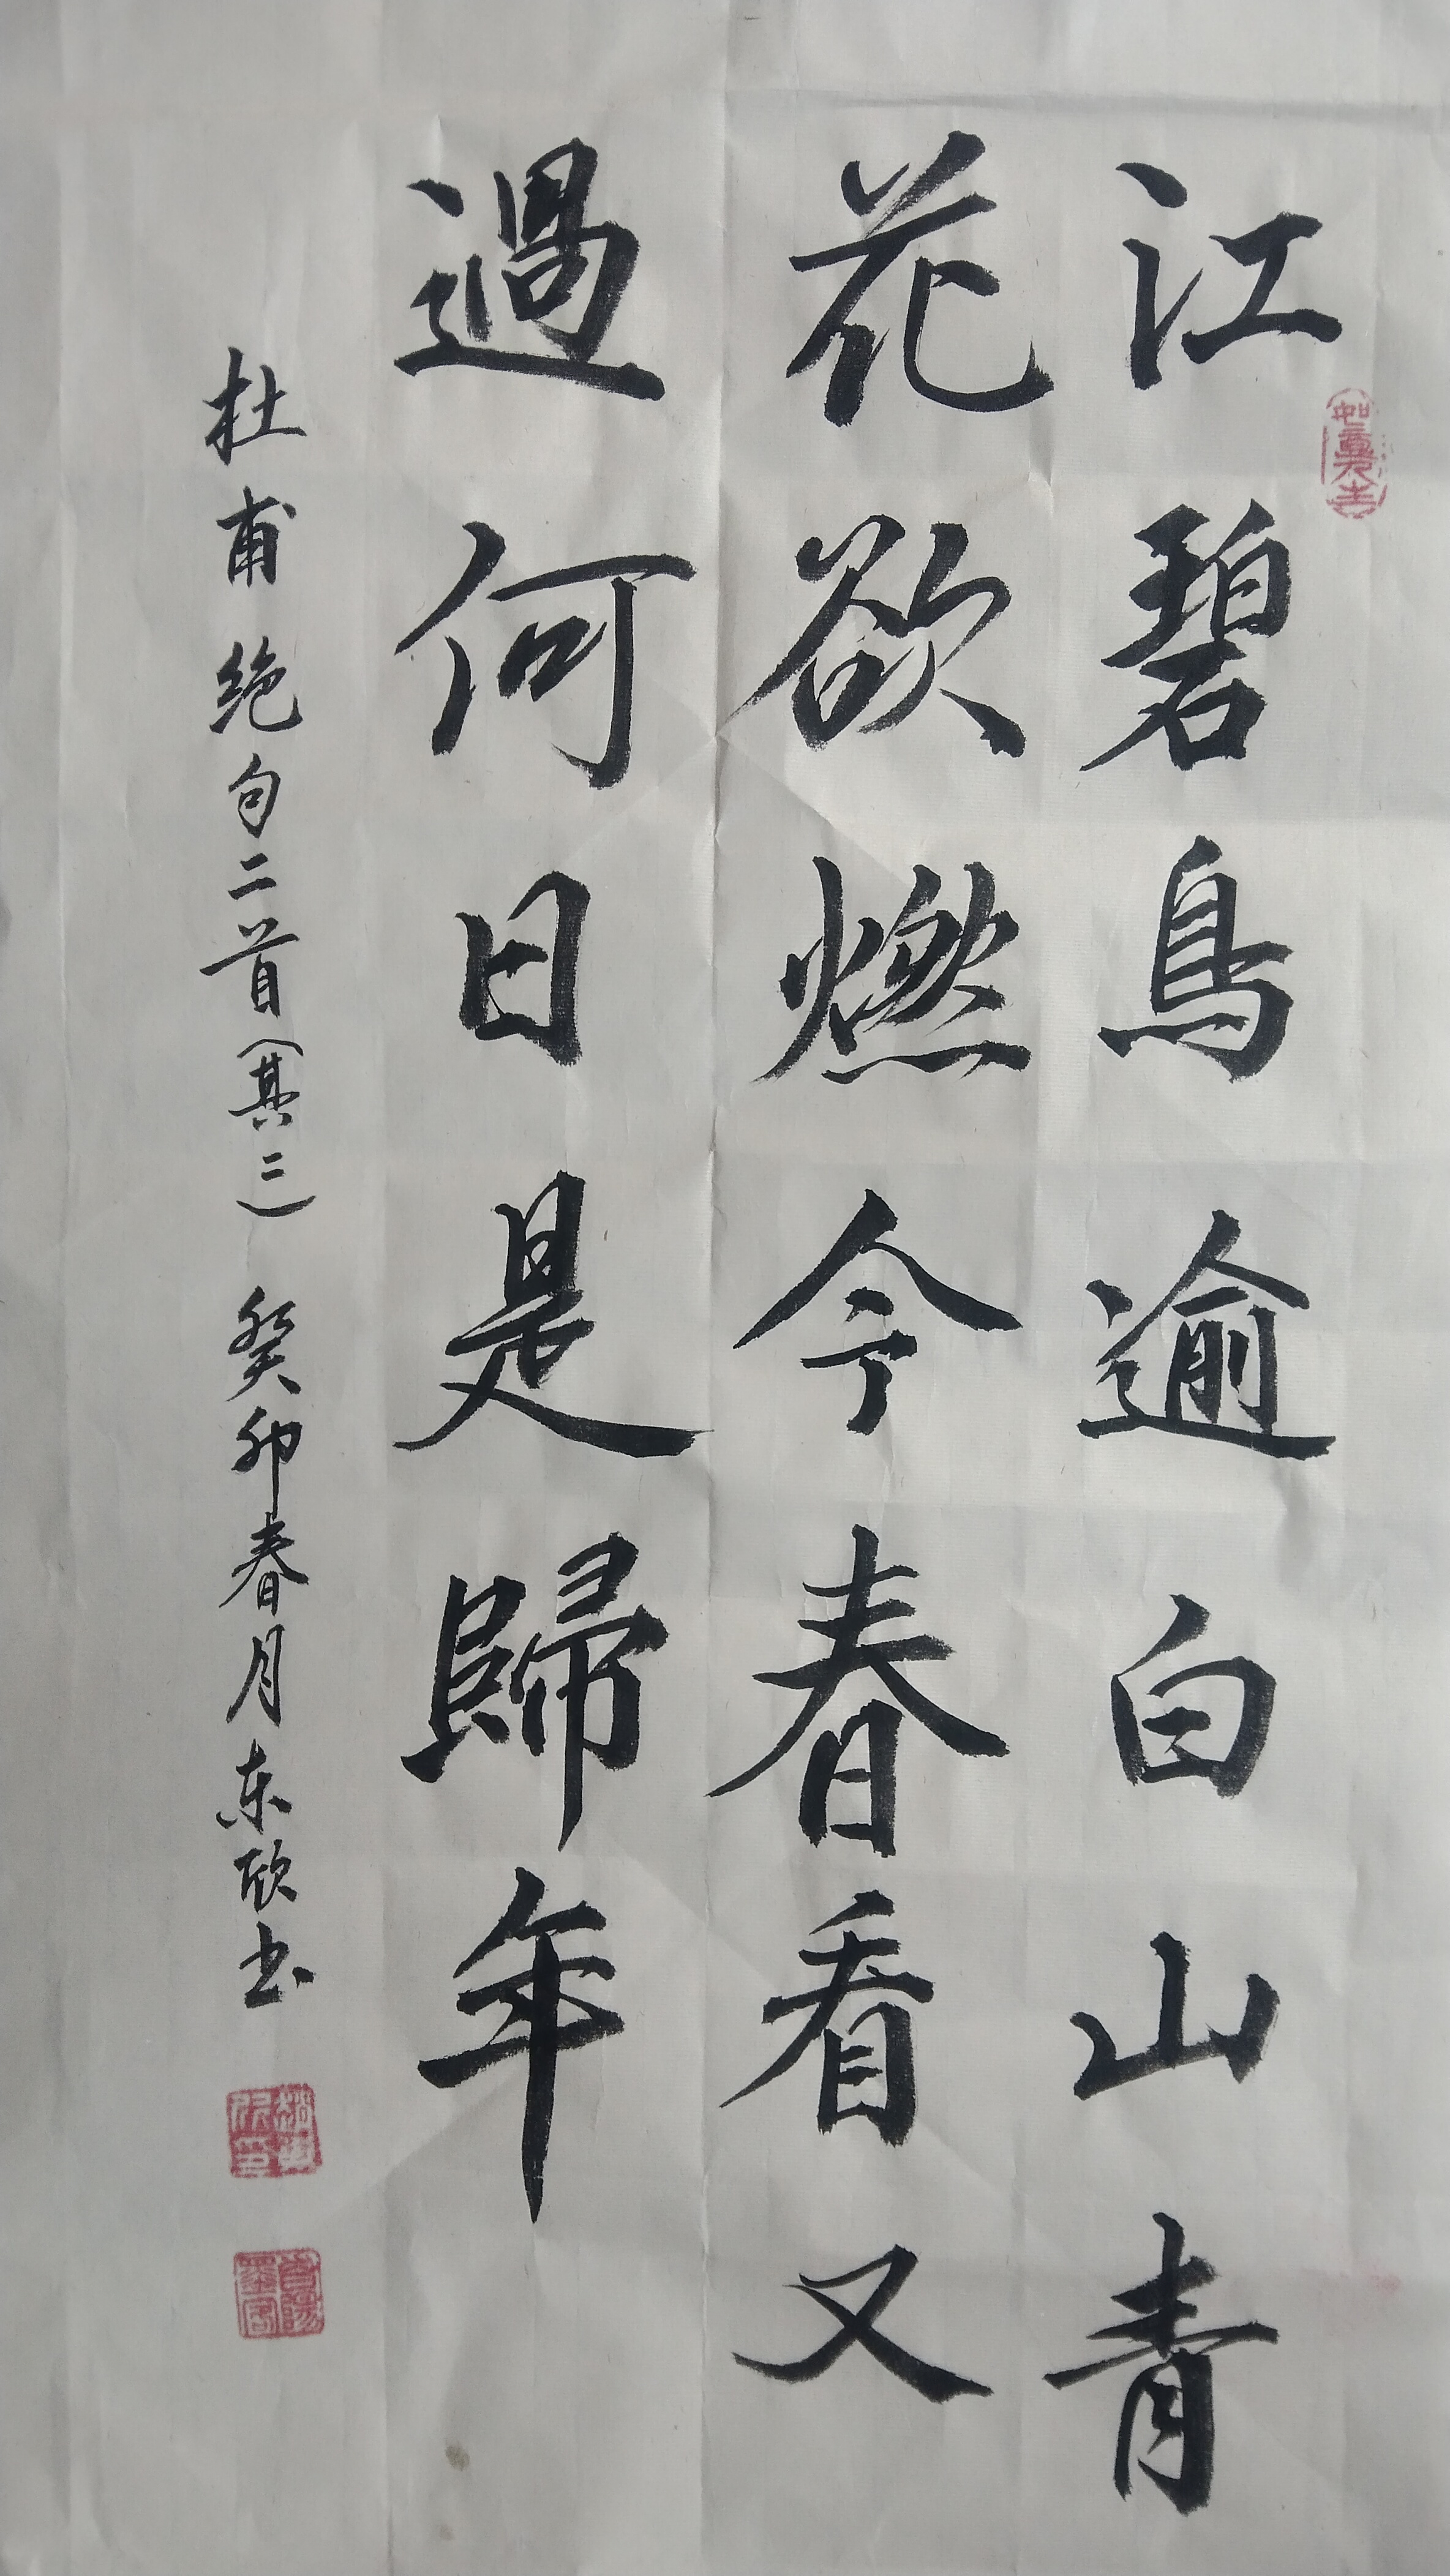 江碧鳥逾白山青
花欲燃今春看又
過何日是歸年
杜甫绝句二首（其二）癸卯春月东欣书
如意元吉